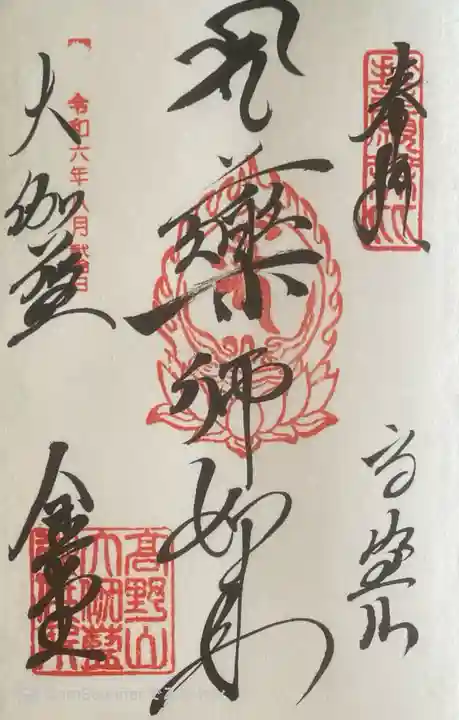 奉拝
高野山
薬師如来
大伽藍
令和六年八月
金堂
高野山
大伽藍